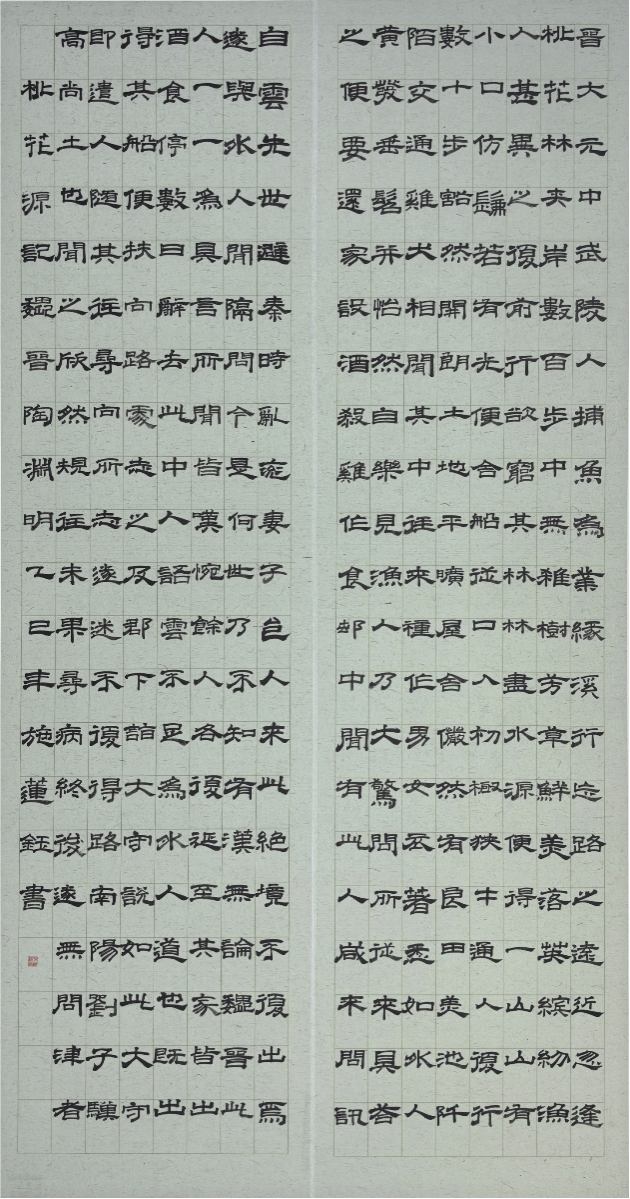 晋大元中武陵人捕魚為業緣溪行忘路之遠近忽逢
桃花林夹岸數百步中無雜樹芳草鮮美落英繽紛漁
人甚異之復前行欲窮其林林盡水源便得一山山有
小口仿髴若有光便舍船從口入初極狹才通人復行
數十步豁然開朗土地平曠屋舍儼然有良田美池阡
陌交通雞犬相聞其中往來種作男女衣著悉如外人
黄發垂髫并怡然自樂見漁人乃大驚問所從來具答
之便要還家設酒殺雞作食邨中聞有此人咸來問訊
自雲先世避秦時亂率妻子邑人來此絕境不復出焉
遂與外人間隔問今是何世乃不知有漢無論魏晋此
人一一為具言所聞皆嘆惋餘人各復延至其家皆出
酒食停數日辭去此中人語雲不足為外人道也既出
得其船便扶向路處志之及郡下詣大守說如此大守
即遣人隨其往尋向所志遂迷不復得路南陽劉子驥
高尚士也聞之欣然規往未果尋病終後遂無問津者
桃花源記魏晋陶淵明乙巳年施蓮鈺書